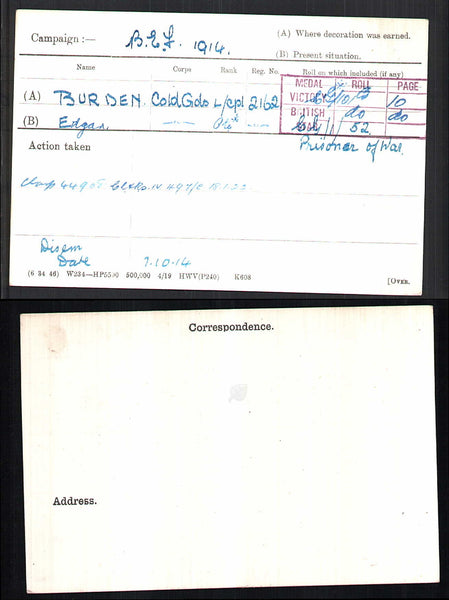 Campaign :— B.E.F. 1914.
(A) Where decoration was earned.
(B) Present situation.
Name Corps Rank Reg. No. Roll on which included (if any)
MEDAL ROLL PAGE
(A) BURDEN. Cold Gds L/Cpl 2162 VICTORY 10 B 10
(B) Edgar. —〃— Pte —〃— BRITISH do do
52.
Action taken Prisoner of War.
Clasp
Disem
Date 7.10.14
(6 34 46) W234—HP5590 500,000 4/19 HWV(P240) K608 [OVER.
Correspondence.
Address.